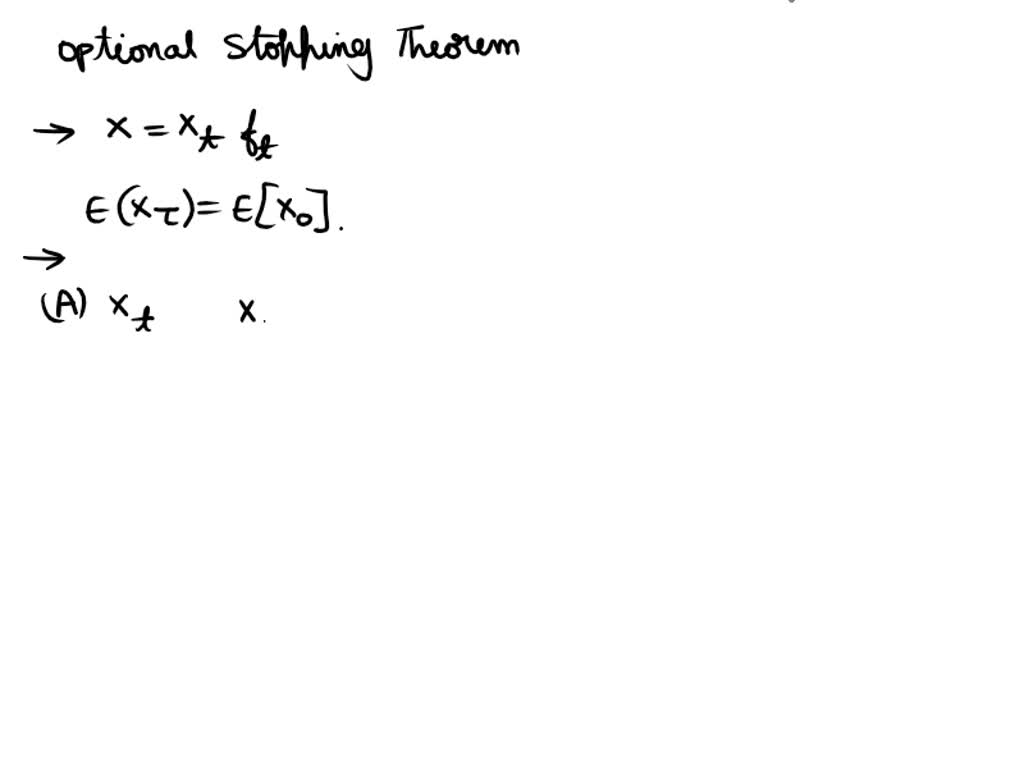 optional Stopping Theorem
→ x = x_t f_t
E(x_τ) = E[x_0].
→
(A) x_t x.